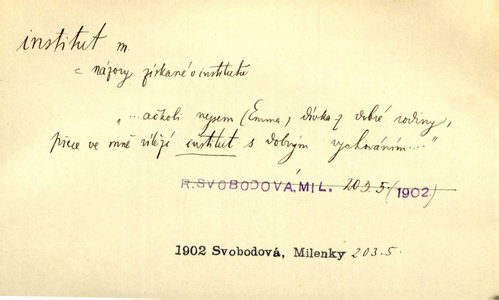 institut m.
= názory získané v institutu
„... ačkoli nejsem (Emma) dívka z dobré rodiny,
přece ve mně vězí institut s dobrým vychováním...."
R. SVOBODOVÁ, MIL. 203.5. (1902)
1902 Svobodová, Milenky 203.5.